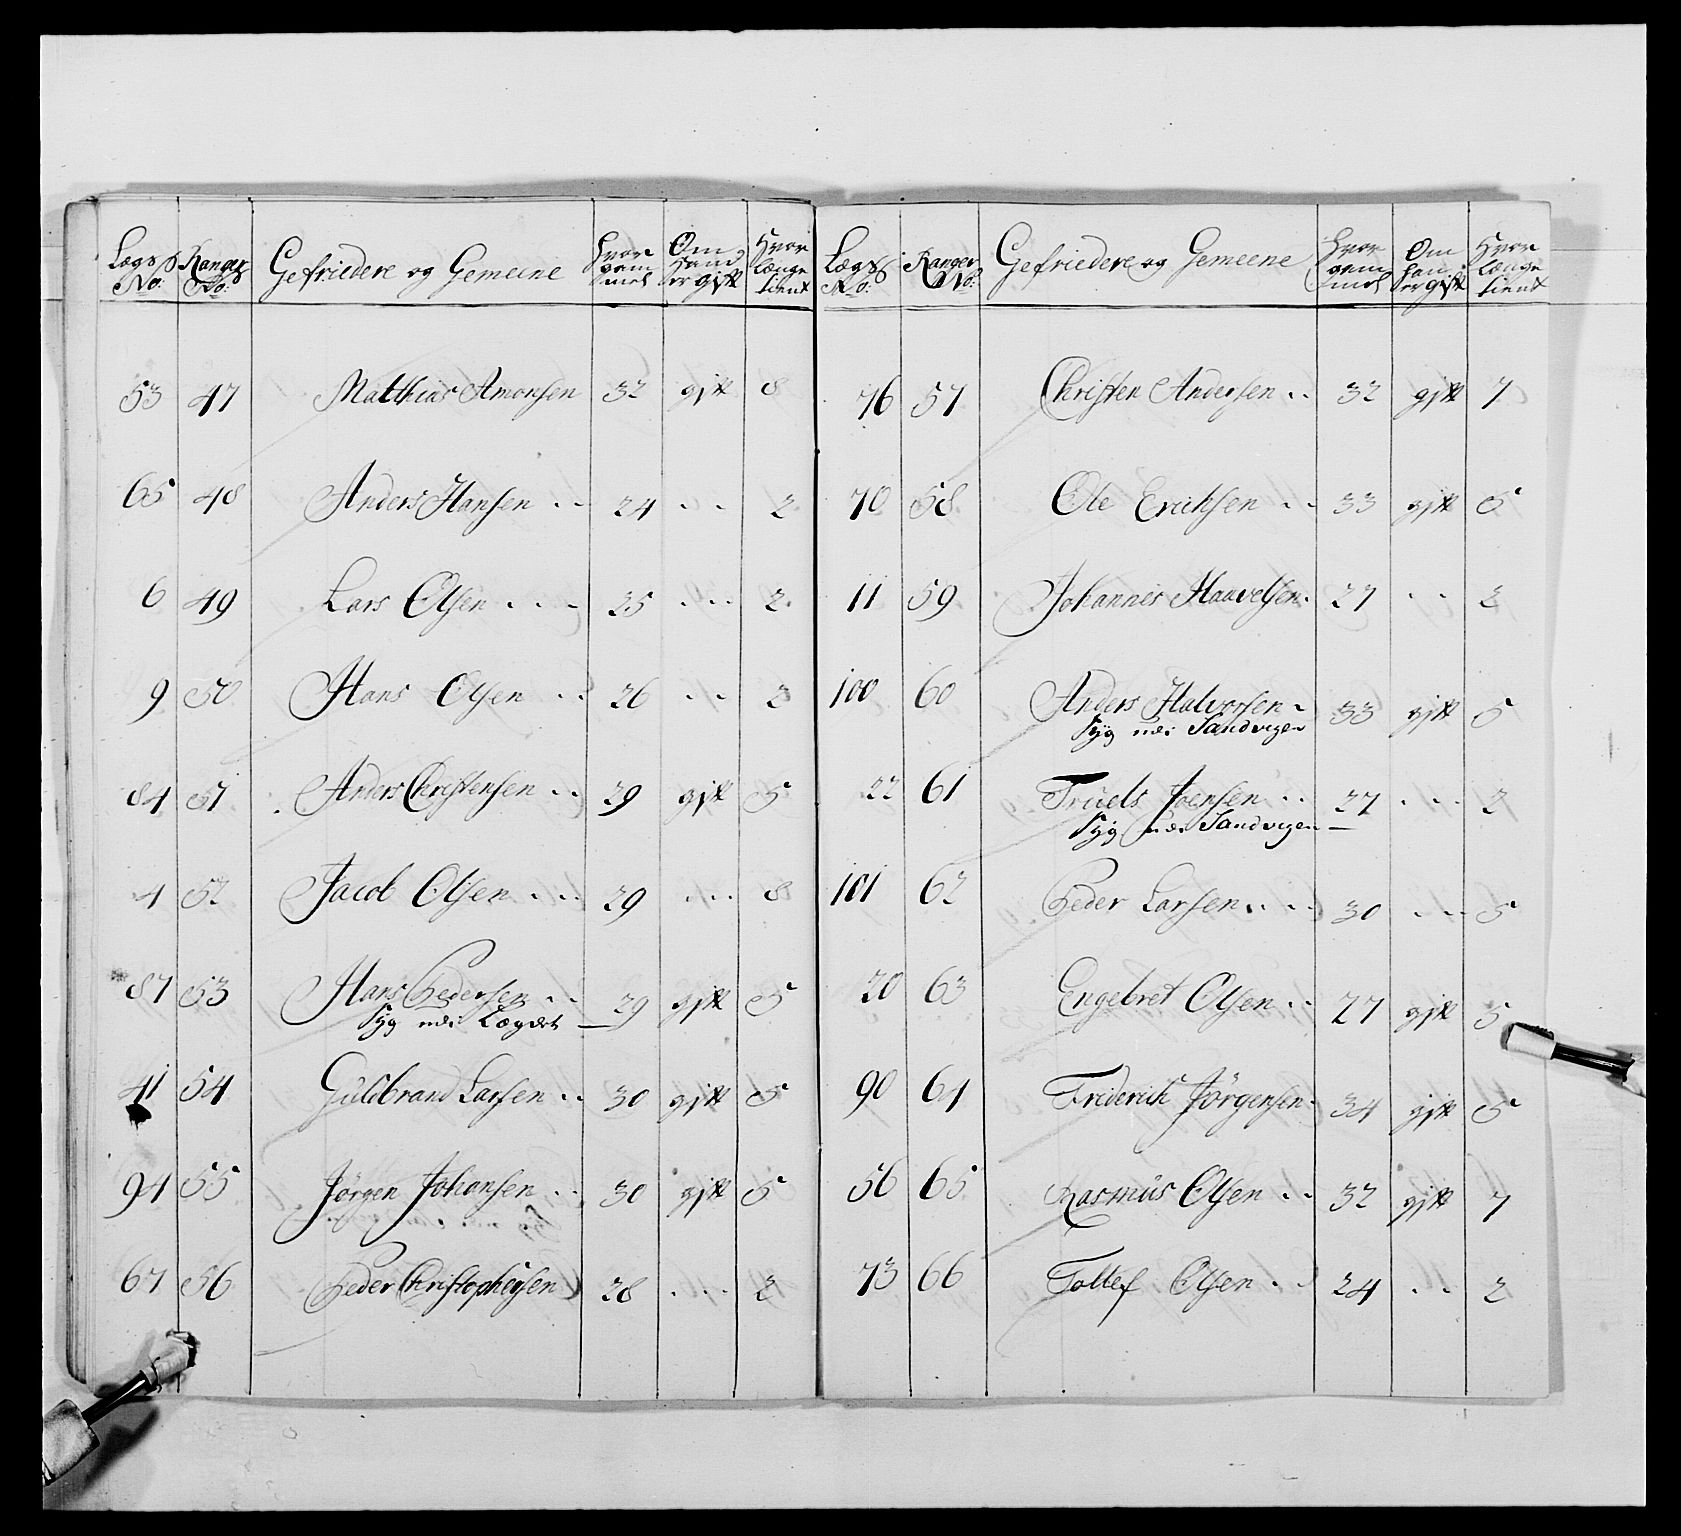 Lægs No: Ranger No: Gefriedere og Gemeene Hvor gam̅el Om hand er gift Hvor længe tient
53 47 Matthias Amonsen 32 gift 8
65 48 Anders Hansen 24 2
6 49 Lars Olsen 25 2
9 50 Hans Olsen 26 2
84 51 Anders Christensen 29 gift 5
4 52 Jacob Olsen 29 8
87 53 Hans Pedersen 29 gift 5
Syg ved Lægdet
41 54 Guldbrand Larsen 30 gift 5
94 55 Jörgen Johansen 30 gift 5
67 56 Peder Christophersen 28 2
Lægs No: Ranger No: Gefriedere og Gemeene Hvor gam̅el Om han er gift Hvor længe tient
76 57 Christen Andersen 32 gift 7
70 58 Ole Erichsen 33 gift 5
11 59 Johannes Haavelsen 27 2
100 60 Anders Halvorsen 33 gift 5
Syg ved Sandvigen
22 61 Truels Joensen 27 2
Syg ved Sandvigen
101 62 Peder Larsen 30 5
20 63 Engebret Olsen 27 gift 5
90 64 Friderich Jörgensen 34 gift 5
56 65 Rasmus Olsen 32 gift 7
73 66 Tollef Olsen 24 2